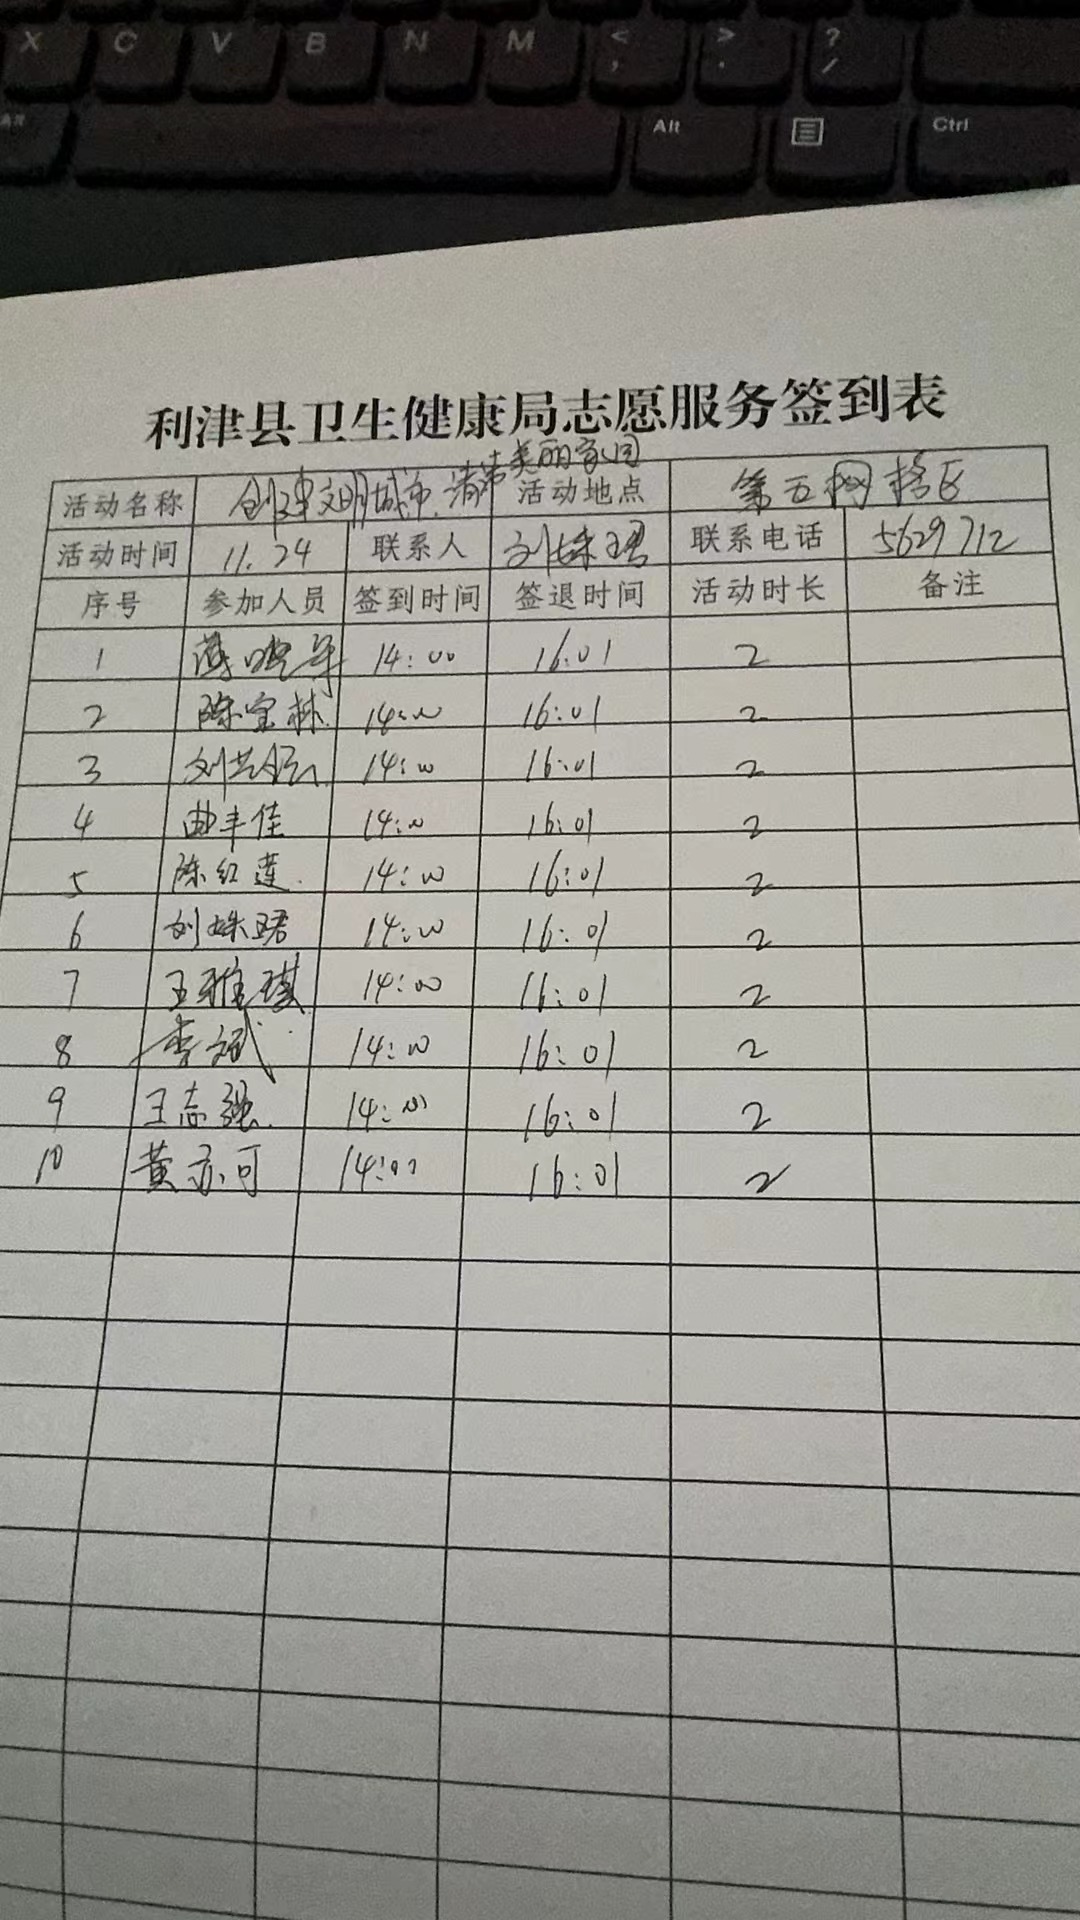 X C V B N M < , > . ? /
Alt Alt Ctrl
利津县卫生健康局志愿服务签到表
活动名称 创建文明城市.清洁美丽家园 活动地点 第五网格区
活动时间 11.24 联系人 刘姝珺 联系电话 5629712
序号 参加人员 签到时间 签退时间 活动时长 备注
1 14:00 16:01 2
2 陈宝林 14:00 16:01 2
3 刘 14:00 16:01 2
4 曲丰佳 14:00 16:01 2
5 陈红莲 14:00 16:01 2
6 刘姝珺 14:00 16:01 2
7 王雅琪 14:00 16:01 2
8 李斌 14:00 16:01 2
9 王志强 14:00 16:01 2
10 黄亦可 14:00 16:01 2